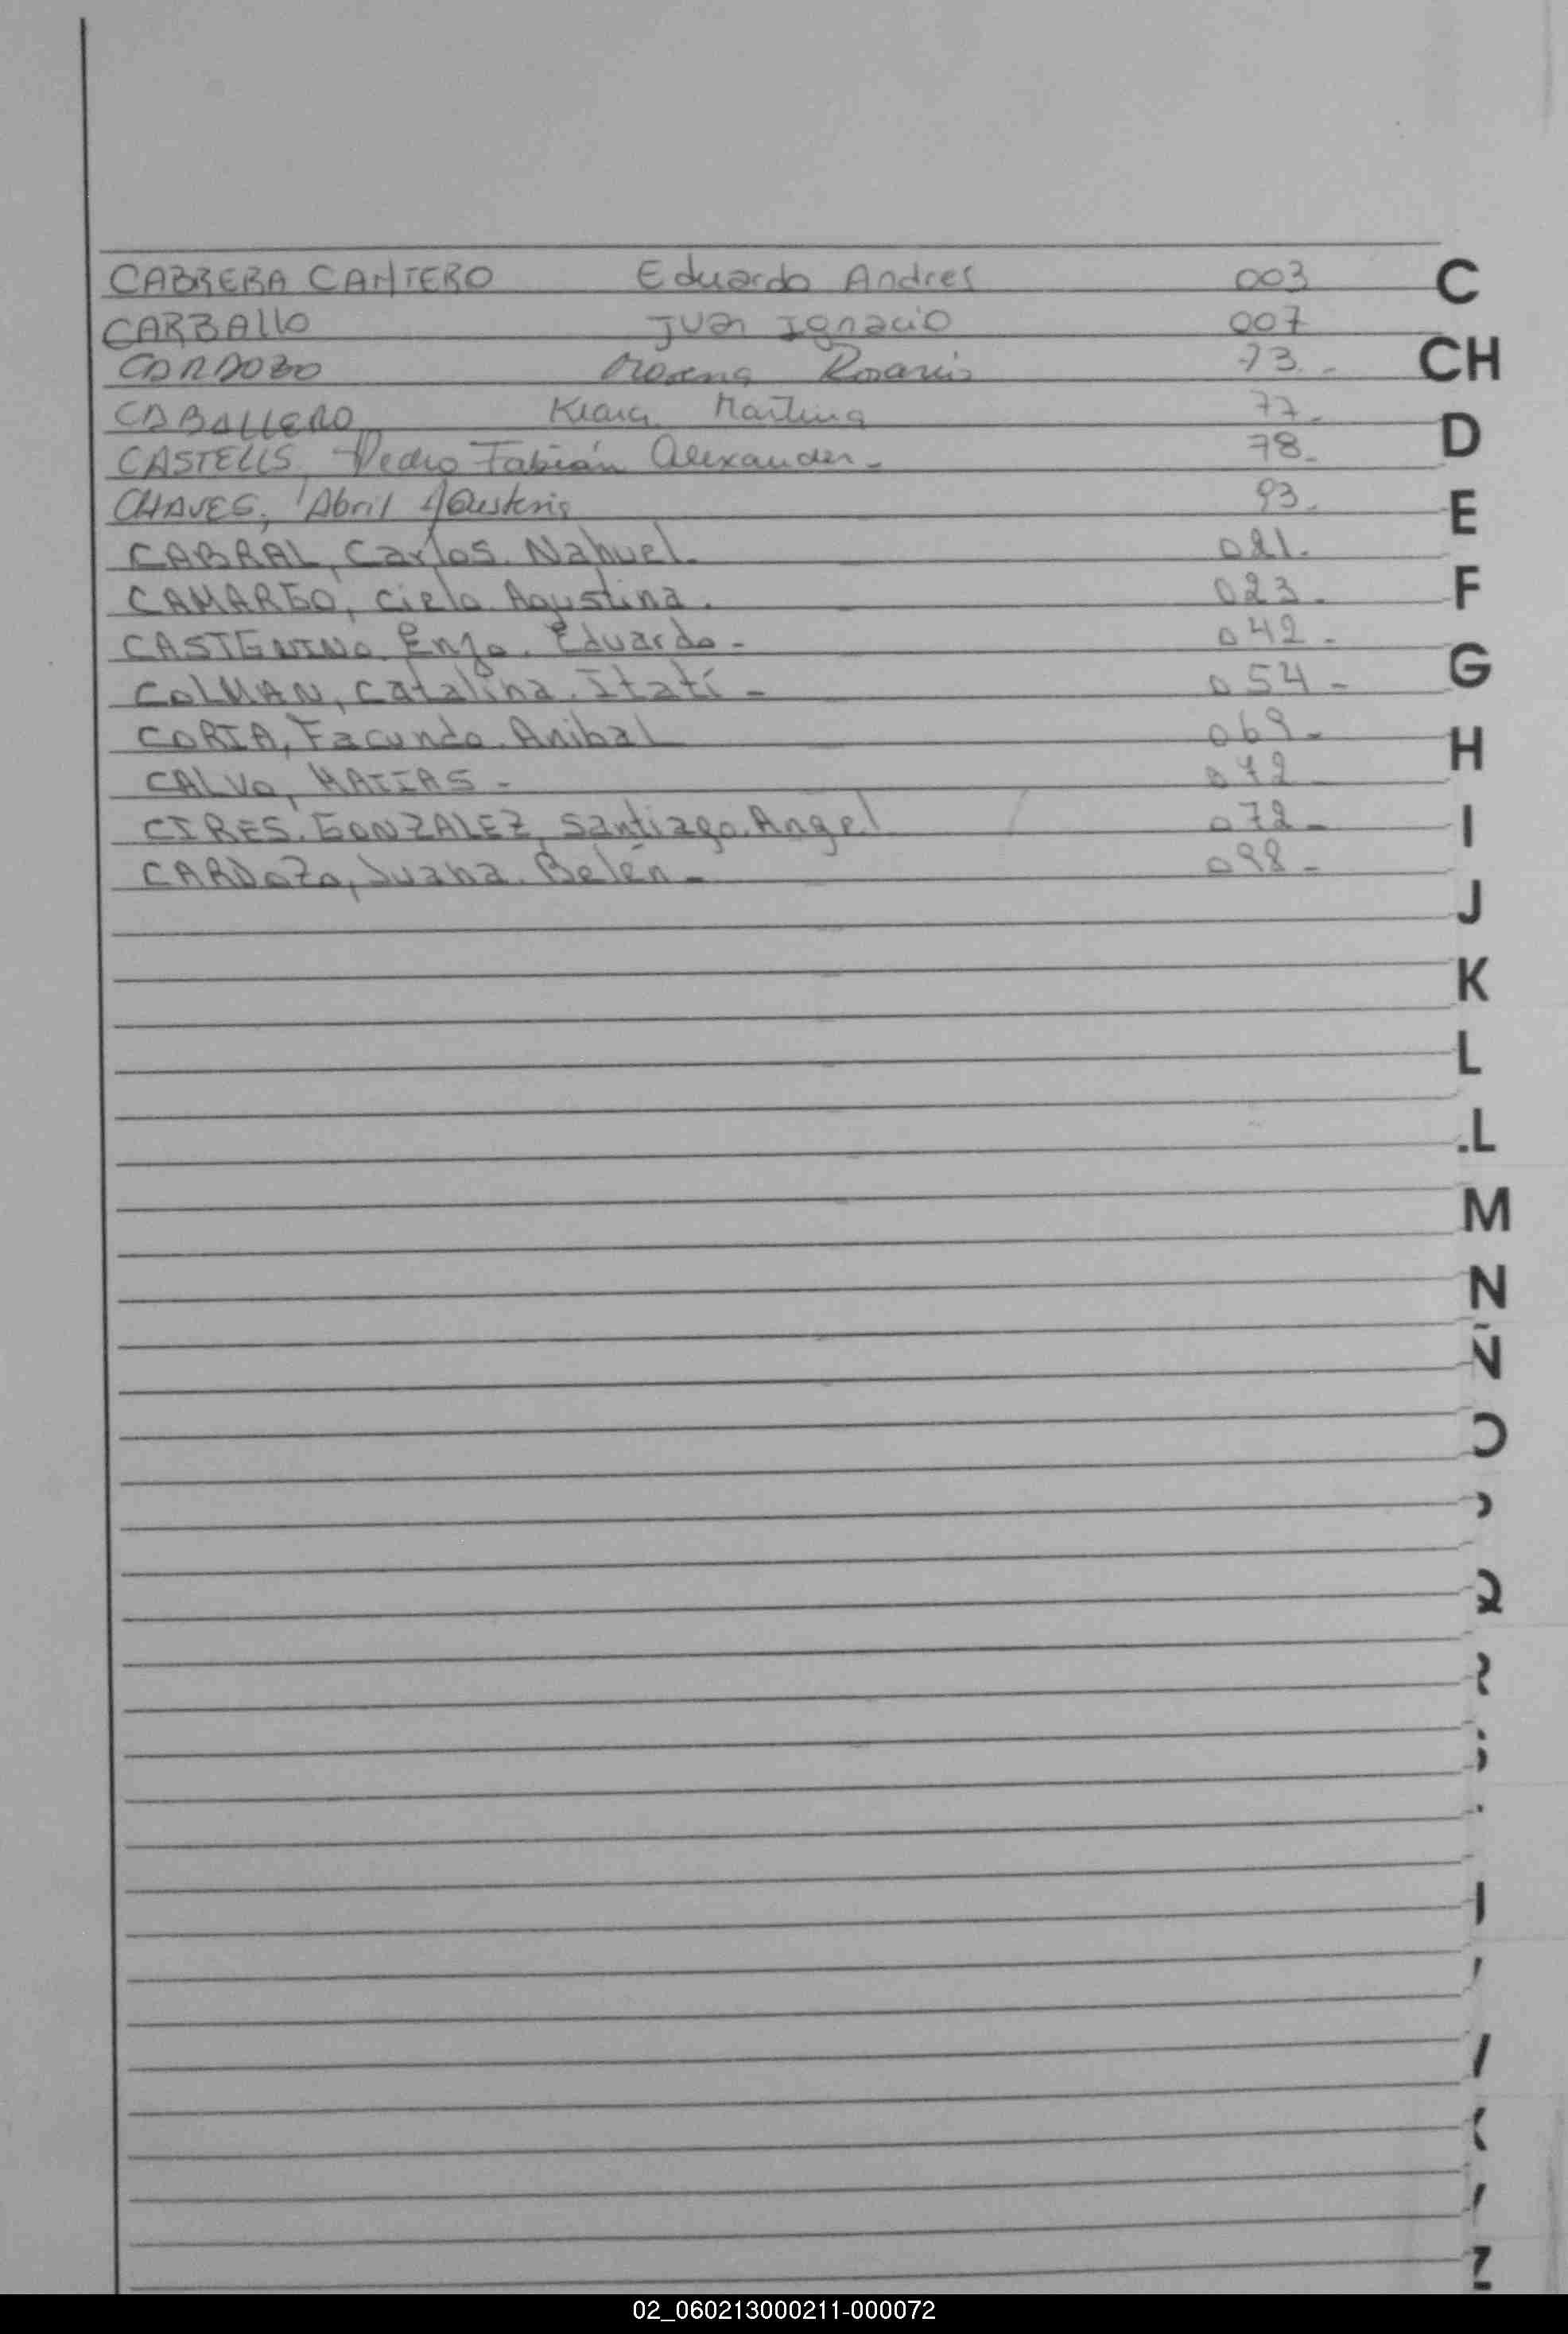 CABRERA CANTERO Eduardo Andres 003 C
CARBALLO Juan Ignacio 007
CARDOZO Morena Rosario 73.- CH
CABALLERO Kiara Martina 77.-
CASTELLS, Pedro Fabián Alexander.- 78.- D
CHAVES, Abril 93.- E
CABRAL, Carlos. Nahuel. 021.
CAMARGO, Cielo. Agustina. 023. F
CASTGNINO. Enzo. Eduardo- 042- G
COLMAN, Catalina. Itatí- 054-
CORIA, Facundo. Anibal 069- H
CALVO, MATIAS- 072
CIRES. GONZALEZ, Santiago. Angel 072- I
CARDOZO, Juana. Belén- 098-
J
K
L
.L
M
N
Ñ
Q
Z
02_060213000211-000072